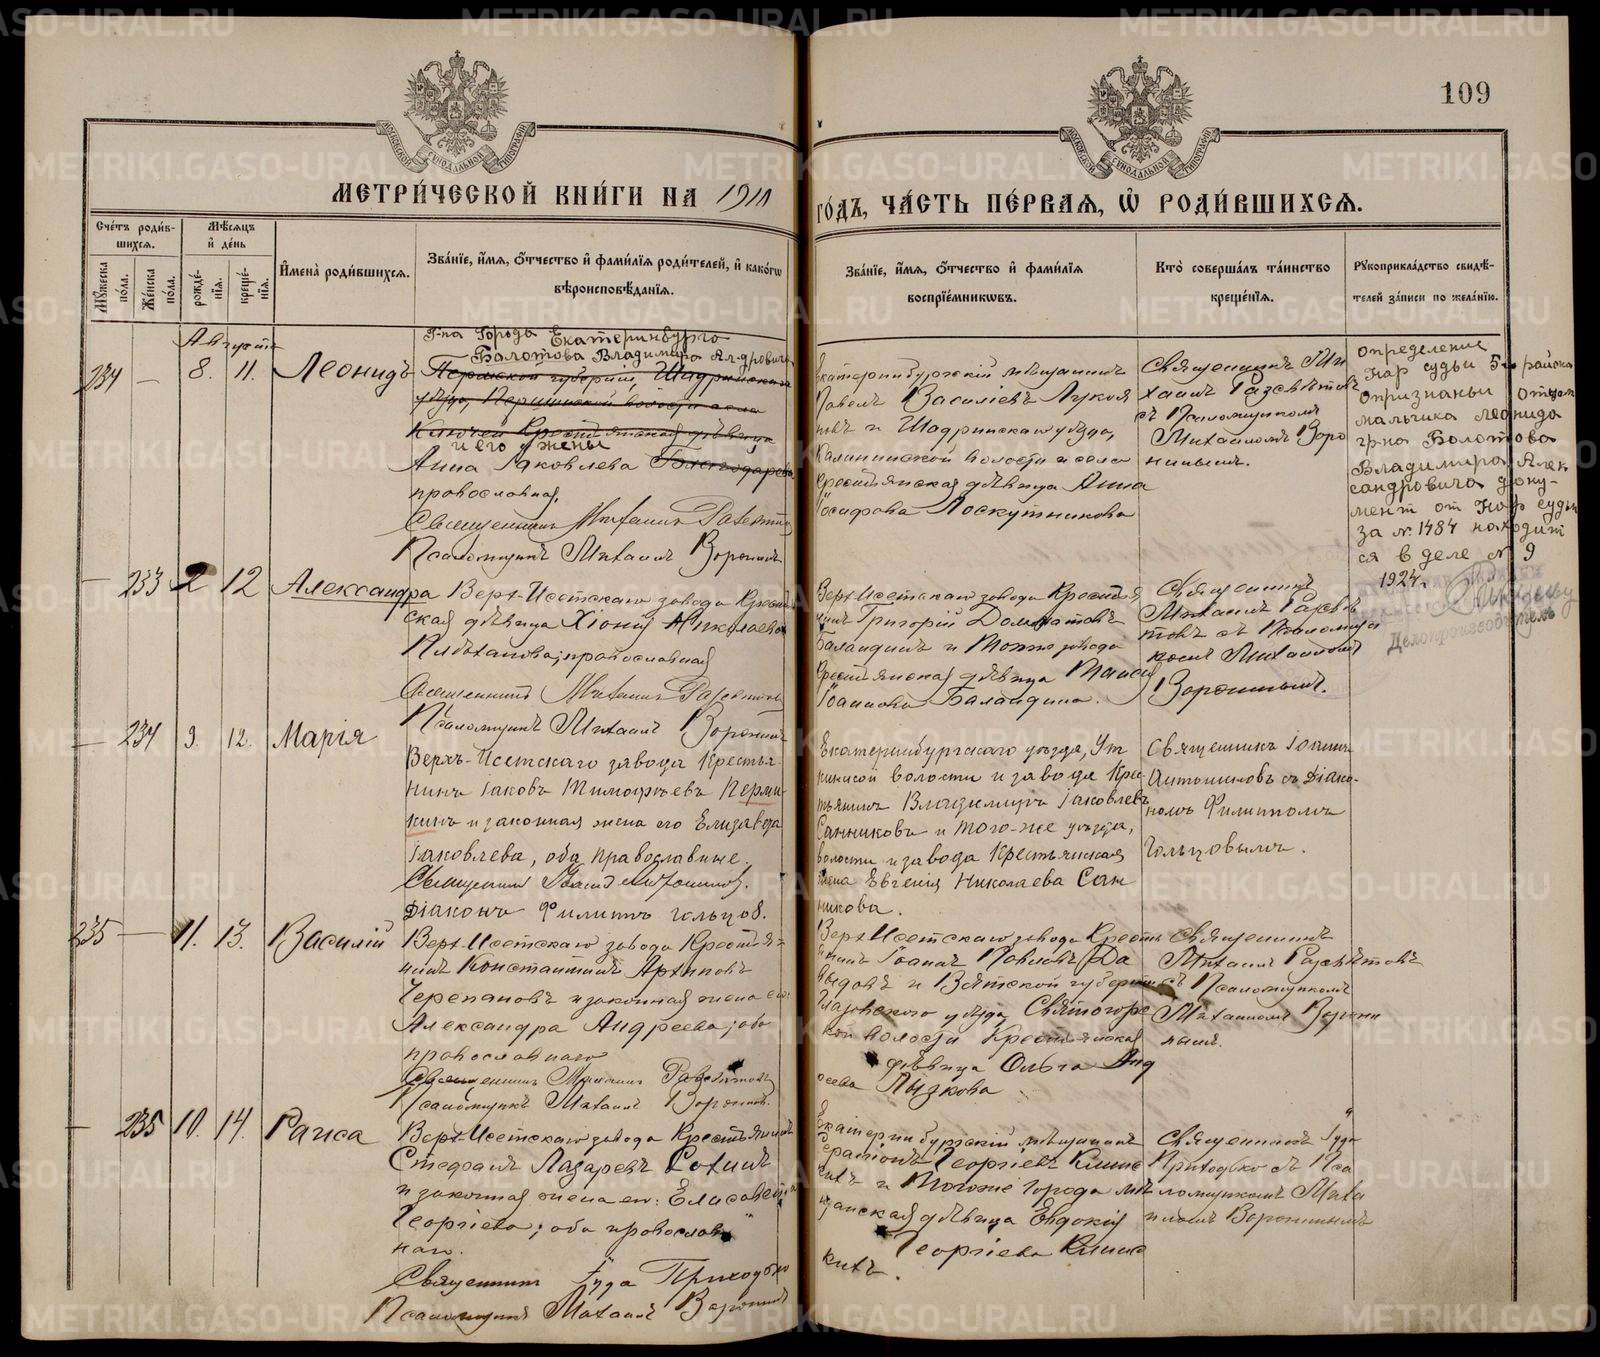 109
МЕТРИ́ЧЕСКОЙ КНИ́ГИ НА 1911
ГО́ДЪ, ЧА́СТЬ ПЕ́РВАЯ, Ѡ҆ РОДИ́ВШИХСѦ.
Сче́тъ роди́в-
шихсѧ.
Мѣ́сѧцъ
и҆ де́нь
Мꙋ́жеска по́ла.
Же́нска по́ла.
рожде́-
нїѧ.
креще́-
нїѧ.
И҆мена̀ роди́вшихсѧ.
Зва́нїе, и҆́мѧ, ѻ҆́тчество и҆ фами́лїѧ роди́телей, и҆ како́гѡ
вѣроисповѣ́данїѧ.
Зва́нїе, и҆́мѧ, ѻ҆́тчество и҆ фами́лїѧ
воспрїе́мникѡвъ.
Кто̀ соверша́лъ та́инство
креще́нїѧ.
Рꙋкоприкла́дство свидѣ́-
телей за́писи по жела́нїю.
Августъ
234 — 8. 11. Леонидъ
Г-на Города Екатеринбурга
Болотова Владимира Ал-дровича
Пермской губерніи, Шадринскаго
уѣзда, волости села
Ключей Крестьянская дѣвица
и его жены
Анна Яковлева
православная.
Священникъ Михаилъ
Псаломщикъ Михаилъ Воронинъ
Екатеринбургскій мѣщанинъ
Павелъ Васильевъ Лукоя
новъ и Шадринскаго уѣзда,
волости и села
Крестьянская дѣвица Анна
Іосифова Лоскутникова
Священникъ Ми
хаилъ
съ Псаломщикомъ
Михаиломъ Воро
нинымъ.
определение
Нар судьи 5-го района
о признаньи отцом
мальчика леонида
гр-на Болотова
Владимира Алек
сандровича доку-
мент от Нар судьи
за № 1484 находит
ся в деле № 9
1924 г.
Делопроизводитель
— 233 2 12 Александра
Верх-Исетскаго завода Крестьян
ская дѣвица Хіонія Николаева
православная
Священникъ Михаилъ
Псаломщикъ Михаилъ Воронинъ
Верх-Исетскаго завода Крестья
нинъ Григорій
Баландинъ и того же завода
Крестьянская дѣвица Таисія
Іоаннова Баландина.
Священникъ
Михаилъ
съ Псаломщи
комъ Михаиломъ
Воронинымъ.
— 234 9. 12. Марія
Верхъ-Исетскаго завода Крестья-
нинъ Іаковъ Тимофеевъ Перми-
кинъ и законная жена его Елизавета
Іаковлева, оба православные.
Священникъ
Діаконъ Филиппъ Гольцов.
Екатеринбургскаго уѣзда, Ут
кинской волости и завода Кре-
стьянинъ Владимиръ Іаковлевъ
Санниковъ и того-же уѣзда,
волости и завода Крестьянская
жена Евгенія Николаева Сан
никова.
Священникъ Іоаннъ
съ Діако-
номъ Филиппомъ
Гольцовымъ.
235 — 11. 13. Василій
Верх-Исетскаго завода Крестья-
нинъ Константинъ Архиповъ
Черепановъ и законная жена его
Александра Андреева; оба
православнаго
Священникъ Михаилъ
Псаломщикъ Михаилъ Воронинъ.
Верх-Исетскаго завода Кресть
янинъ Іоаннъ Павловъ Да
выдовъ и Вятской губерніи
Глазовскаго уѣзда, Святогорс
кой волости Крестьянская
дѣвица Ольга Анд
реева Лызкова
Священникъ
Михаилъ
съ Псаломщикомъ
Михаиломъ Ворони
нымъ.
— 235 10. 14. Раиса
Верх-Исетскаго завода Крестьянинъ
Стефанъ Лазаревъ
и законная жена его: Елисавета
Георгіева; оба православ
наго.
Священникъ Іуда Приходько
Псаломщикъ Михаилъ Воронинъ
Екатеринбургскій мѣщанинъ
Серапіонъ Георгіевъ
и того же города мѣ
щанская дѣвица Евдокія
Георгіева
Священникъ Іуда
Приходько съ Пса
ломщикомъ Миха
иломъ Воронинымъ
METRIKI.GASO-URAL.RU